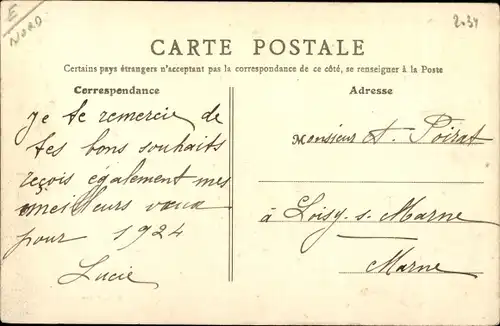 E
NORD
2034
CARTE POSTALE
Certains pays étrangers n'acceptant pas la correspondance de ce côté, se renseigner à la Poste
Correspondance
Je te remercie de
tes bons souhaits
reçois également mes
meilleurs vœux
pour 1924
Lucie
Adresse
Monsieur A. Poirat
à Loisy-s-Marne
Marne